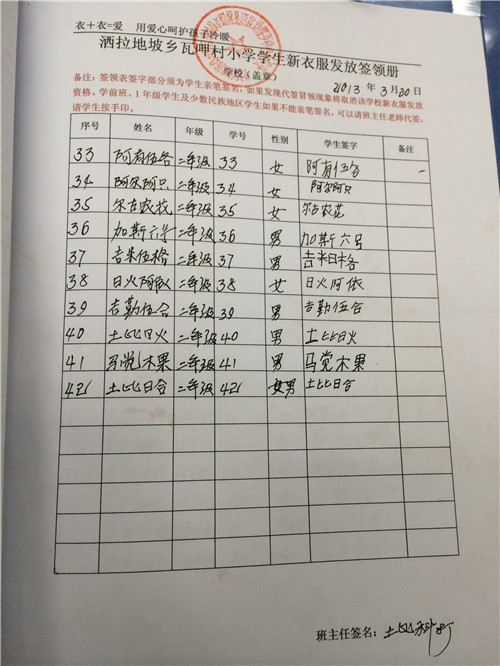 衣+衣=爱 用爱心呵护孩子冷暖
洒拉地坡乡瓦呷村小学学生新衣服发放签领册
学校(盖章) 2013 年 3 月 20 日
备注:签领表签字部分须为学生亲笔签名,如果发现代签冒领现象将取消该学校新衣服发放
资格。学前班、1年级学生及少数民族地区学生如果不能亲笔签名,可以请班主任老师代签,
请学生按手印。
序号 姓名 年级 学号 性别 学生签字 备注
33 阿有伍各 二年级 33 女 阿有伍各
34 阿尔阿只 二年级 34 女 阿尔阿只
35 尔古农 二年级 35 女 尔古农
36 加斯六号 二年级 36 男 加斯六号
37 吉米伍格 二年级 37 男 吉米
38 日火阿 二年级 38 女 日火阿依
39 吉勒伍合 二年级 39 男 吉勒伍合
40 土比日火 二年级 40 男 土比日火
41 马党木果 二年级 41 男 马党木果
42 土比日合 二年级 42 男 土比日合
班主任签名: 土比科